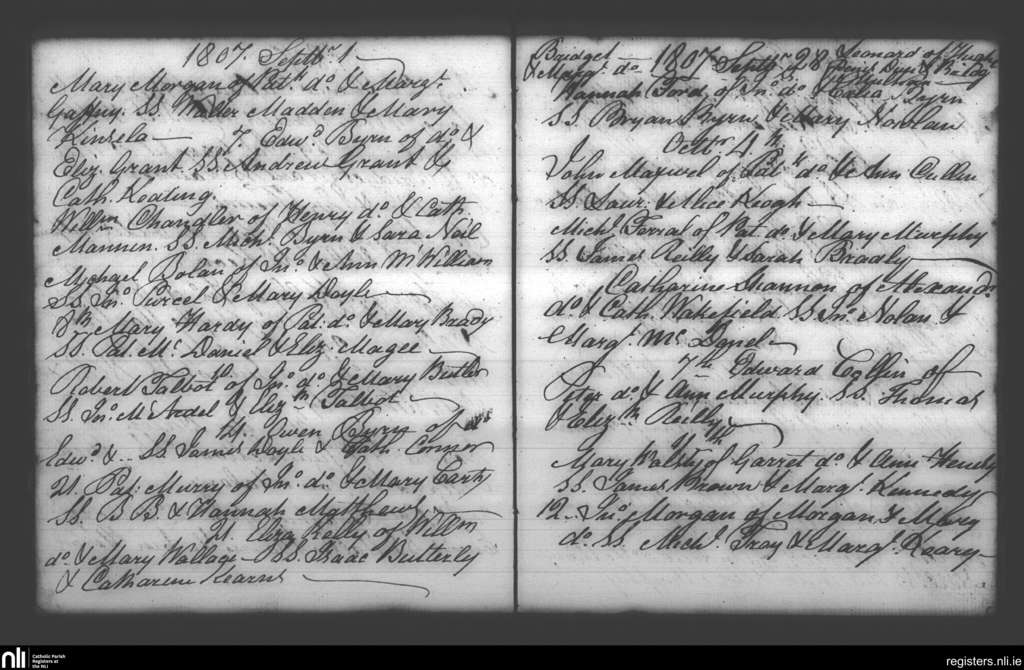 1807. Septbr 1
Mary Morgan of Patk do & Margt
Gaffny. SS. Walter Madden & Mary
Kinsela — 7 Edwd Byrn of do &
Eliz. Grant SS. Andrew Grant &
Cath. Keating
Willm Chandler of Henry do & Cath
Mannin. SS. Michl Byrn & Sara Neil
Michael Dolan of Jno & Ann McWilliam
SS. Jno Purcel & Mary Doyle
8th Mary Hardy of Pat: do & Mary Baady
SS. Pat. Mc Daniel & Eliz. Magee
Robert Talbot of Jno do & Mary Butler
SS. Jno McArdel & Elizth Talbot
21. Owen Byrn of
Edwd & SS James Doyle & Cath. Connor
21. Pat: Murry of Jno do & Mary Carty
SS. B B. & Hannah Matthews
21. Eliza Kelly of Willm
do & Mary Wallace SS. Isaac Butterly
& Catharine Kearns
Bridget — 1807 Septbr 28 Leonard of
& Margt do Denis Byrn & Biddy
Hannah Ford of Jno do & Celia Byrn
SS Bryan Byrn & Mary Nowlan
Octbr 4th
John Maxwel of Patk do & Ann Cullin
SS Laur. & Alice Keogh
Michl Forral of Pat do & Mary Murphy
SS. James Reilly & Sarah Bradly
Catharine Shannon of Alexandr
do & Cath. Wakefield SS Jno Nolan &
Margt Mc Donel
7th Edward Coffin of
Petr do & Ann Murphy. SS. Thomas
& Elizth Reilly
Mary Walsh of Garret do & Ann
SS. James Brown & Margt Kennedy
12. Jno Morgan of Morgan & Mary
do SS Michl Tray & Margt Keary
nli Catholic Parish
Registers at
the NLI
registers.nli.ie